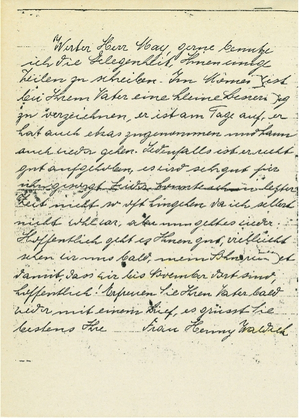 "Werter Herr May, gerne benutze
ich die Gelegenheit, Ihnen einige
Zeilen zu schreiben. Im Momen ist
bei Ihrem Vater eine kleine Besserg
zu verzeichnen, er ist am Tage auf, er
hat auch etwas zugenommen und kann
auch wieder gehen. Jedenfalls ist er recht
gut aufgehoben, es wird sehr gut für
ihn gesorgt. Leider konnte ich in letzter
Zeit nicht so oft hingehen da ich selbst
nicht wohl war, aber nun geht es wieder.
Hoffentlich geht es Ihnen gut, vielleicht
sehen wir uns bald, mein
damit, dass wir bis November dort sind,
hoffentlich! Erfreuen Sie Ihren Vater bald
wieder mit einem Brief, es grüsst Sie
bestens Ihre Frau Henny